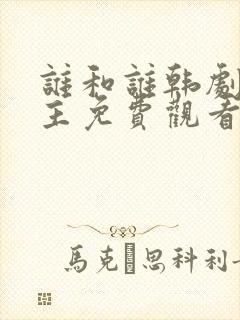 誰和誰韩劇
王免費觀看
馬克·思科利